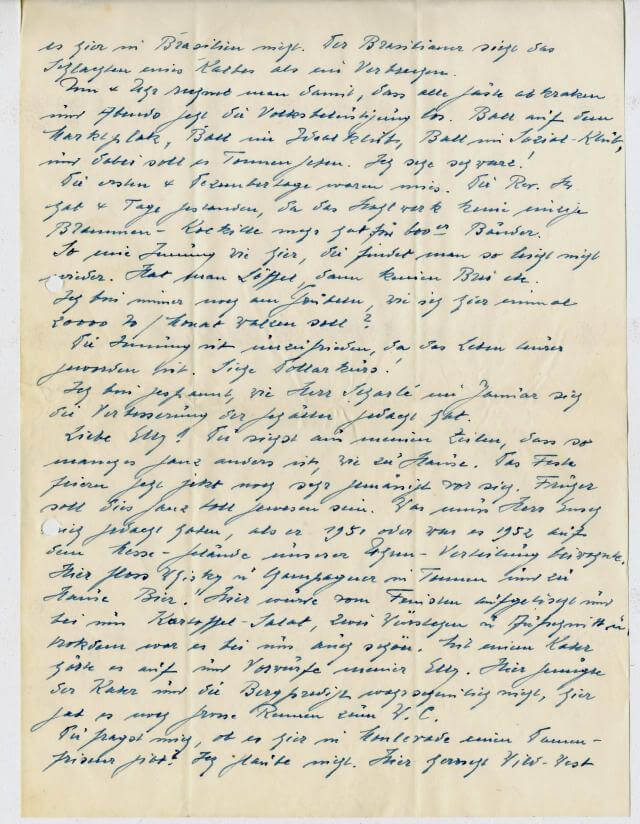 es hier in Brasilien nicht. Der Brasilianer sieht das
Schlachten eines Kalbes als ein Verbrechen.
Um 4 Uhr rechnet man damit, dass alle Gäste abhauen
und Abends geht die Volksbelustigung los. Ball auf dem
Marktplatz, Ball im Idealklub, Ball im Sozial-Klub,
und dabei soll es Tonnen geben. Ich sehe schwarz!
Die ersten 4 Dezembertage waren mies. Die Rev. Str
hat 4 Tage gestanden, da das Stahlwerk keine einzige
Brammen-Kokille mehr hat für 600er Bänder.
So eine Innung wie hier, die findet man so leicht nicht
wieder. Hat man Löffel, dann keinen Brei etc.
Ich bin immer noch am Grübeln, wie ich hier einmal
20000 To/Monat walzen soll?
Die Innung ist unzufrieden, da das Leben teurer
geworden ist. Siehe Dollarkurs!
Ich bin gespannt, wie Herr im Januar sich
die Verbesserung der Gehälter gedacht hat.
Liebe Elly! Du siehst aus meinen Zeilen, dass so
manches ganz anders ist, wie zu Hause. Das Feste
feiern geht jetzt noch sehr gemässigt vor sich. Früher
soll dies ganz toll gewesen sein. Was muss Herr
sich gedacht haben, als er 1951 oder war es 1952 auf
dem Messe-Gelände unserer Verteilung beiwohnte.
Hier floss Whisky u Champagner in Tonnen und zu
Hause Bier! Hier wurde vom Feinsten aufgetischt und
bei uns Kartoffel-Salat, zwei Würstchen u Aufschnitt u
trotzdem war es bei uns auch schön. Mit einem Kater
hörte es auf und Vorwürfe meiner Elly. Hier genügte
der Kater und die Bergpredigt wahrscheinlich nicht, hier
gab es noch grosse Rennen zum W.C.
Du fragst mich, ob es hier in Monlevade einen Damen-
friseur gibt? Ich glaube nicht. Hier herrscht Wild-West